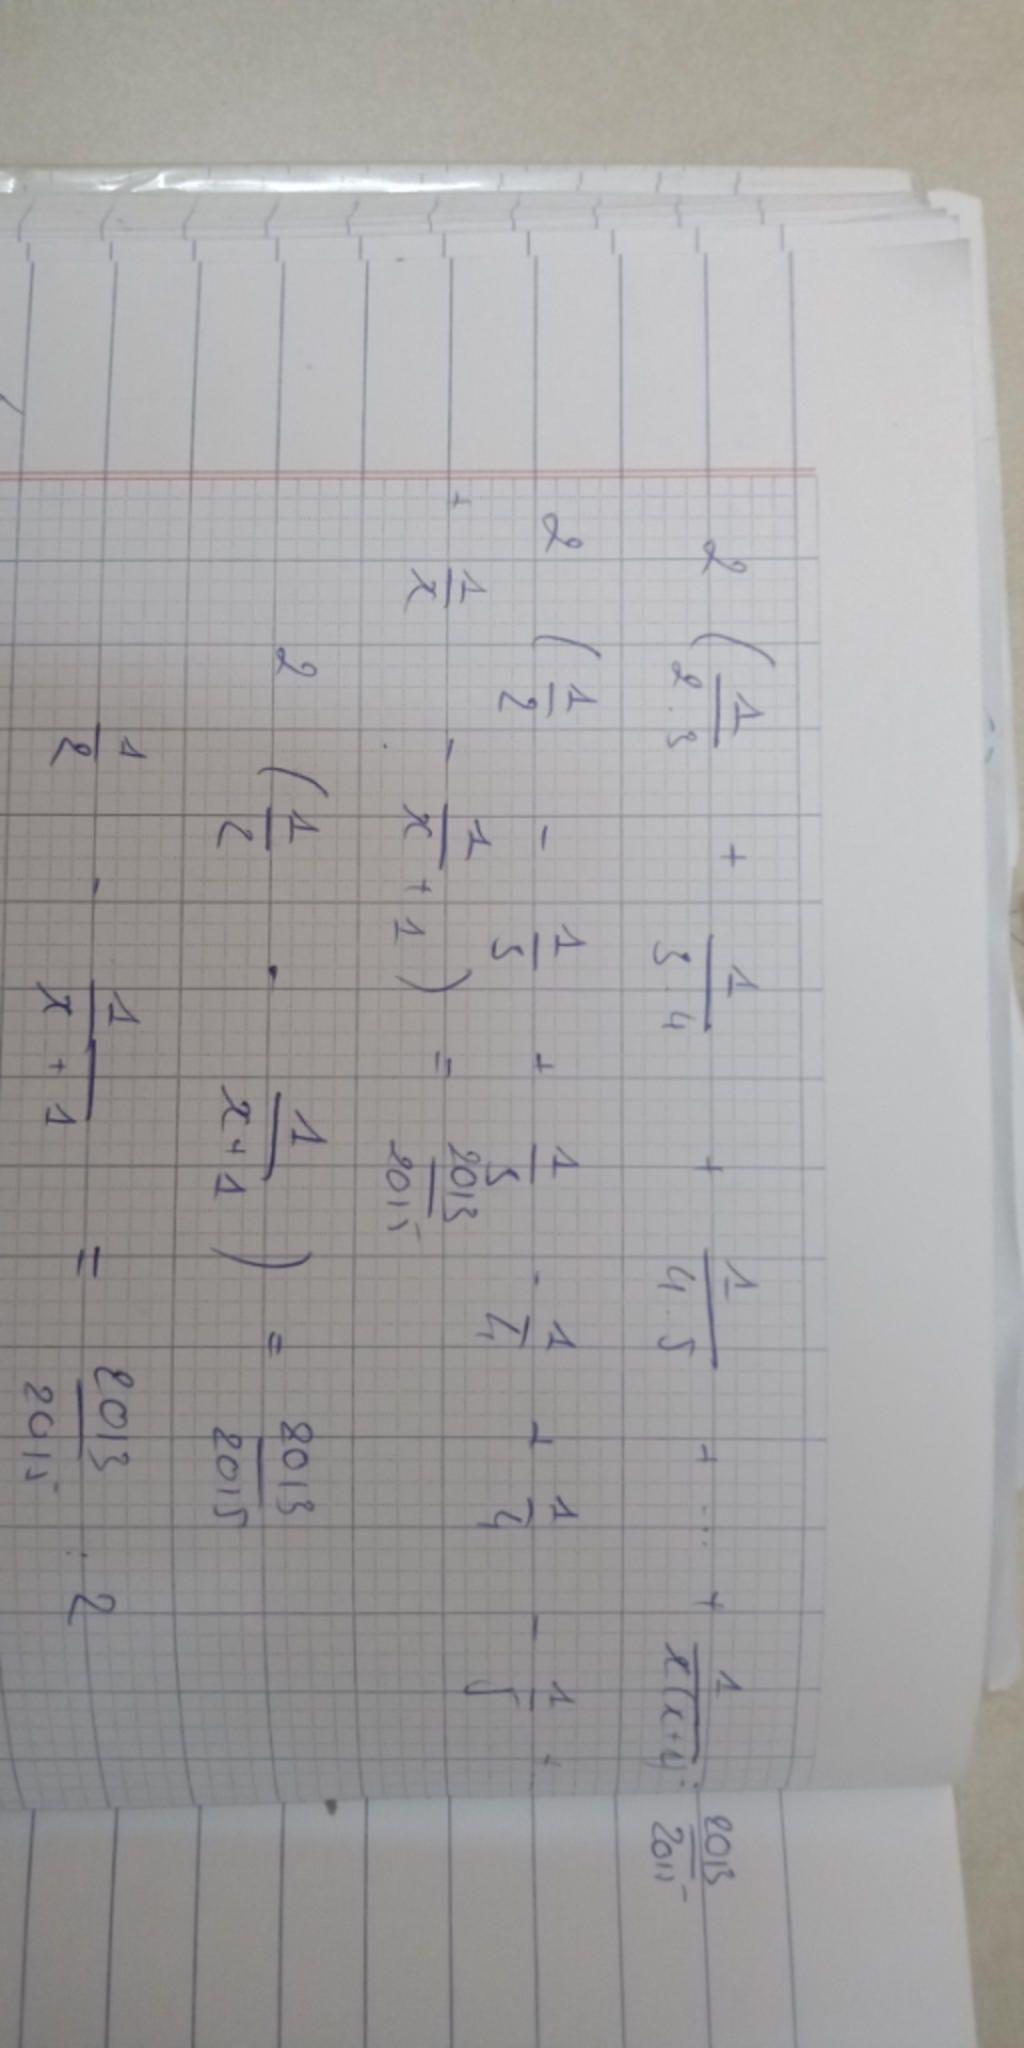 2 ( 1/2.3 + 1/3.4 + 1/4.5 + ... + 1/x(x+1) = 2013/2015
2 ( 1/2 - 1/3 + 1/3 - 1/4 + 1/4 - 1/5 + ...
+ 1/x - 1/x+1 ) = 2013/2015
2 ( 1/2 - 1/x+1 ) = 2013/2015
1/2 - 1/x+1 = 2013/2015 : 2